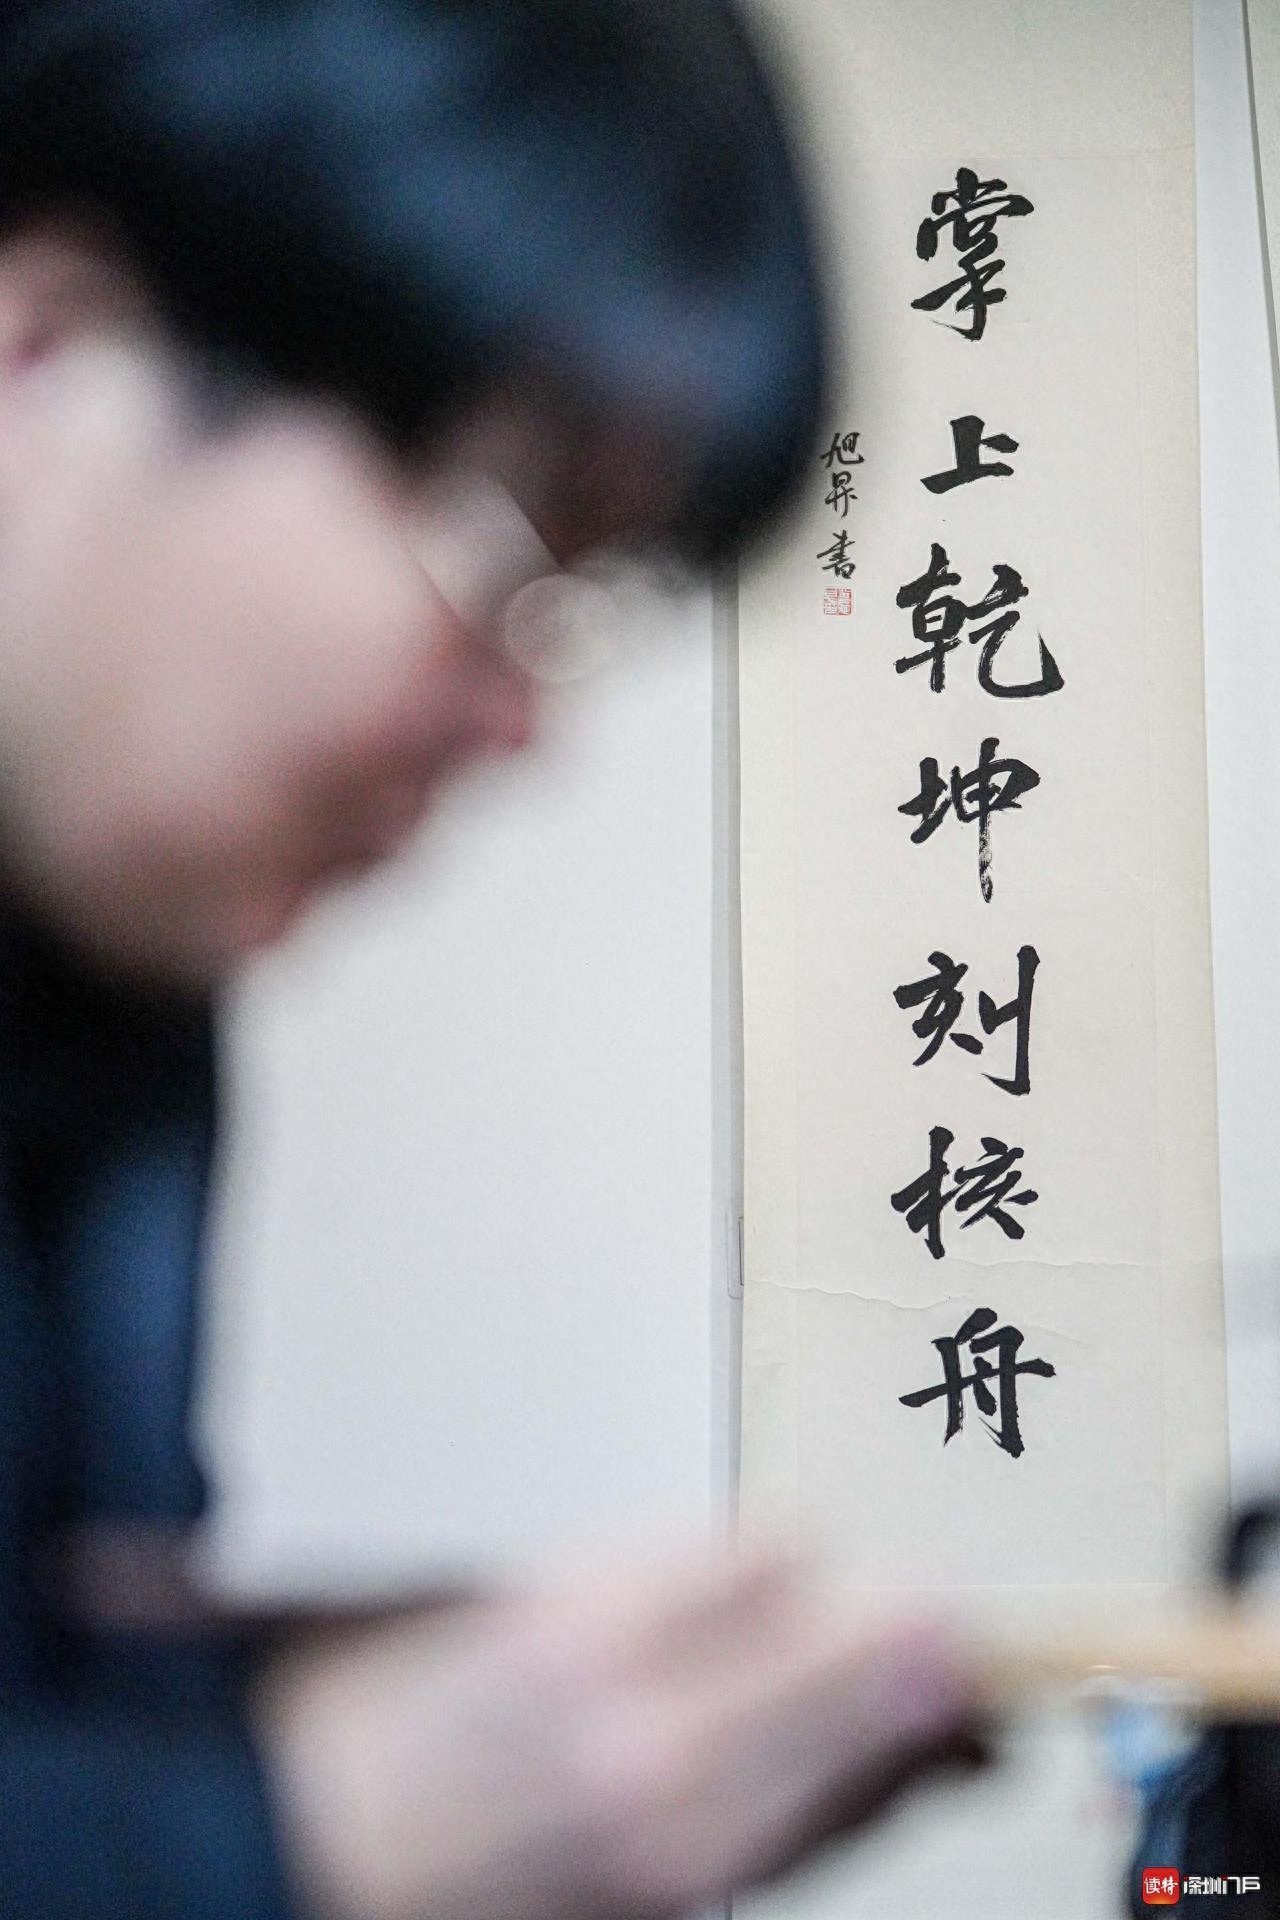 掌上乾坤刻核舟
旭昇书
读特 深圳门户